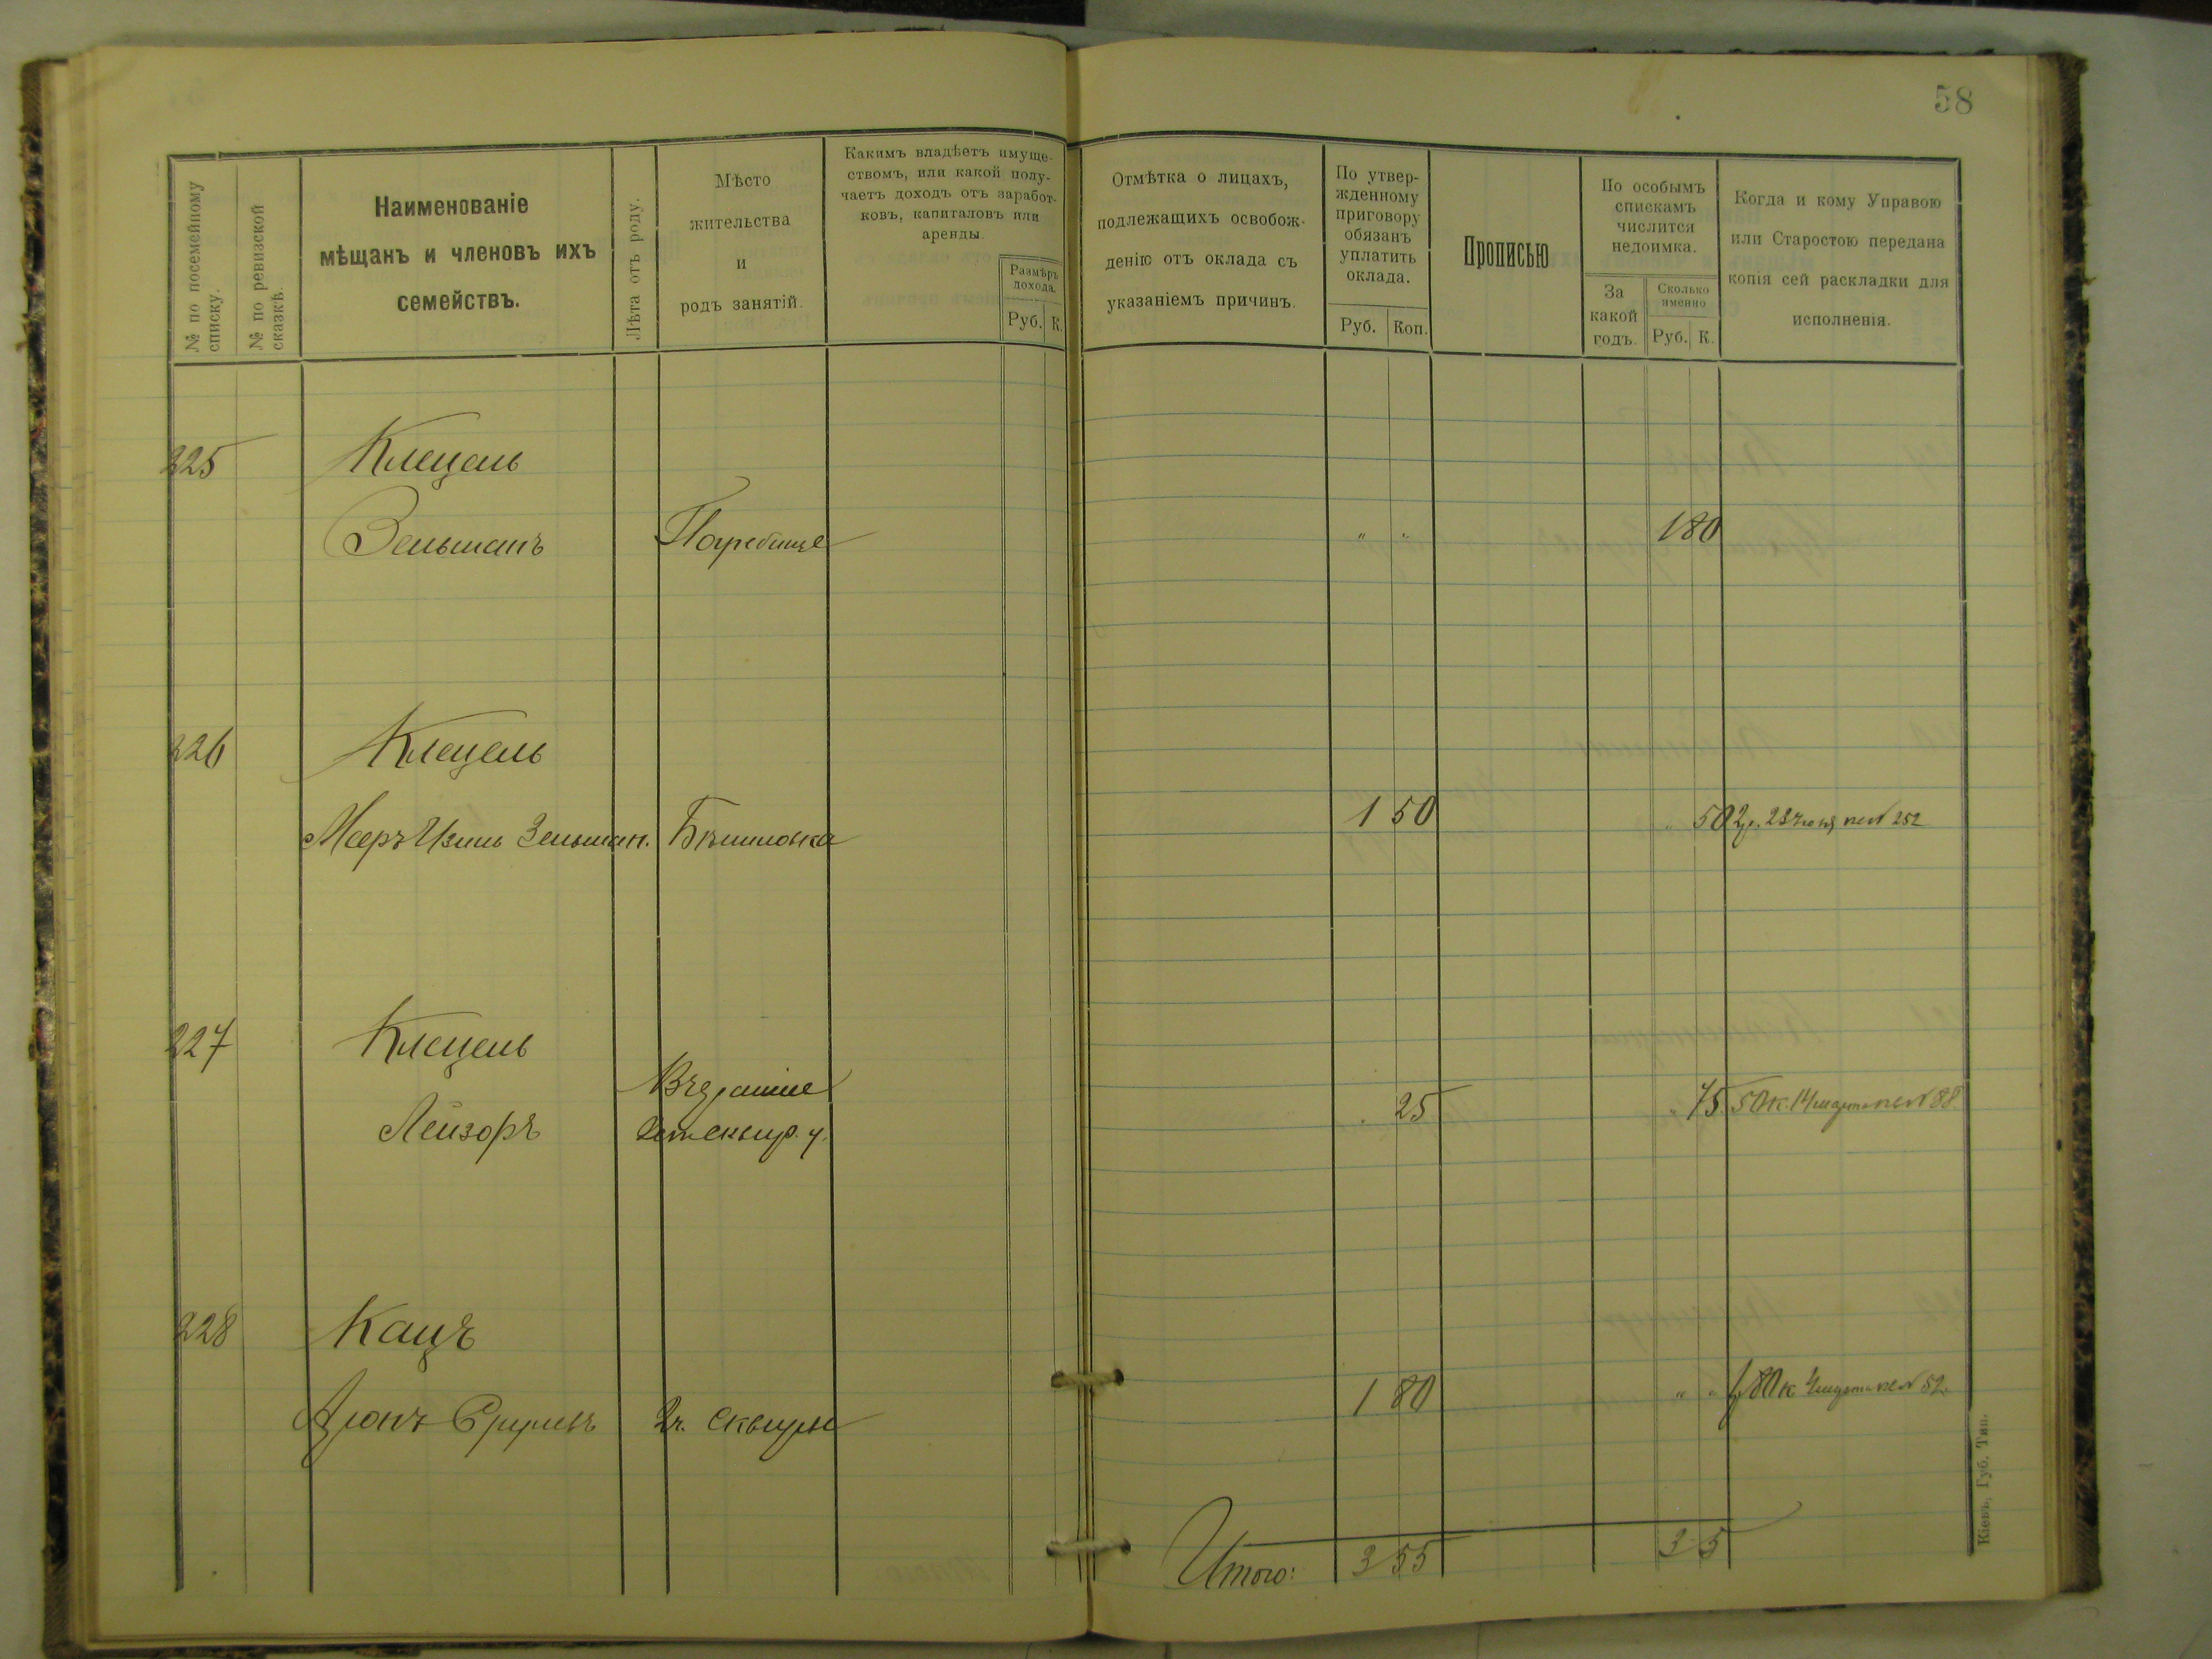 58
№ по посемейному списку.
№ по ревизской сказкѣ.
Наименованіе
мѣщанъ и членовъ ихъ
семействъ.
Лѣта отъ роду.
Мѣсто
жительства
и
родъ занятій.
Какимъ владѣетъ имуще-
ствомъ, или какой полу-
чаетъ доходъ отъ заработ-
ковъ, капиталовъ или
аренды.
Размѣръ
дохода.
Руб. К.
Отмѣтка о лицахъ,
подлежащихъ освобож-
денію отъ оклада съ
указаніемъ причинъ.
По утвер-
жденному
приговору
обязанъ
уплатить
оклада.
Руб. Коп.
Прописью
По особымъ
спискамъ
числится
недоимка.
За
какой
годъ.
Сколько
именно
Руб. К.
Когда и кому Управою
или Старостою передана
копія сей раскладки для
исполненія.
225 Клецель
Зельманъ Погребище " " 1 80
226 Клецель
Мееръ Изиль Зельман. 1 50 " 50 2р. 252
227 Клецель
25 " 75 50 к. 14 марта 88
Лейзоръ
228 Кацъ
1 80 " " 1 80 к 4 марта 52
Аронъ Сквира
Итого: 3 55 3 5
Кіевъ, Губ. Тип.